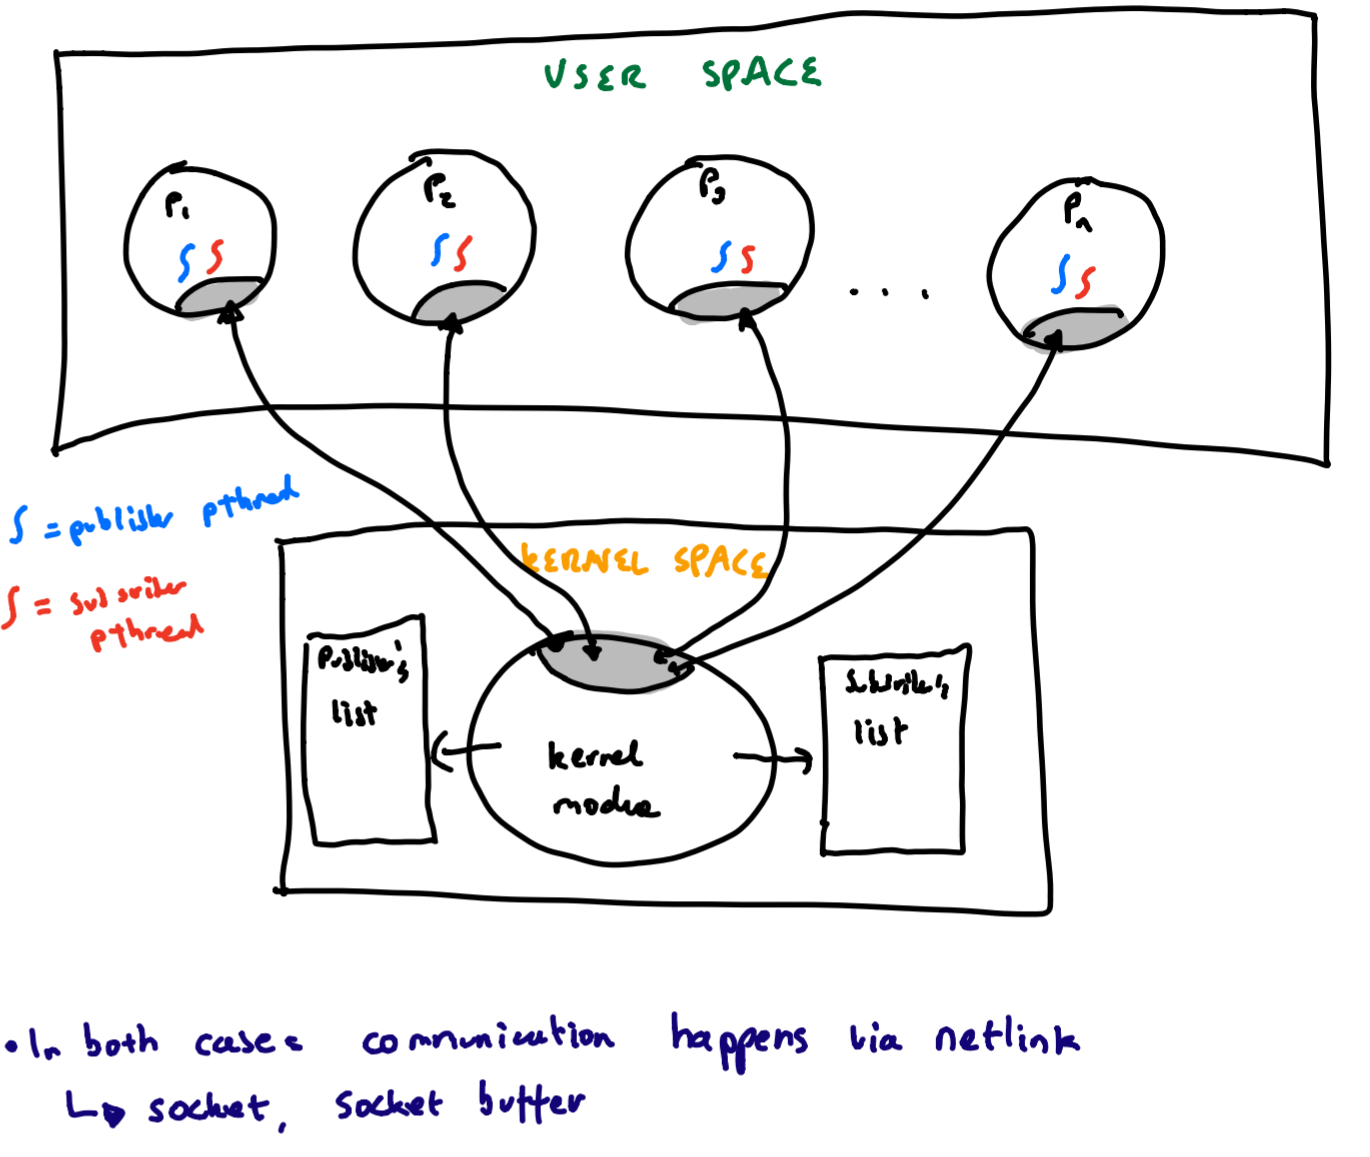 USER SPACE
P1
P2
P3
. . .
Pn
S = publisher pthread
S = subscriber
pthread
KERNEL SPACE
Publisher's
list
kernel
module
Subscriber's
list
• In both cases communication happens via netlink
↳ socket, socket buffer